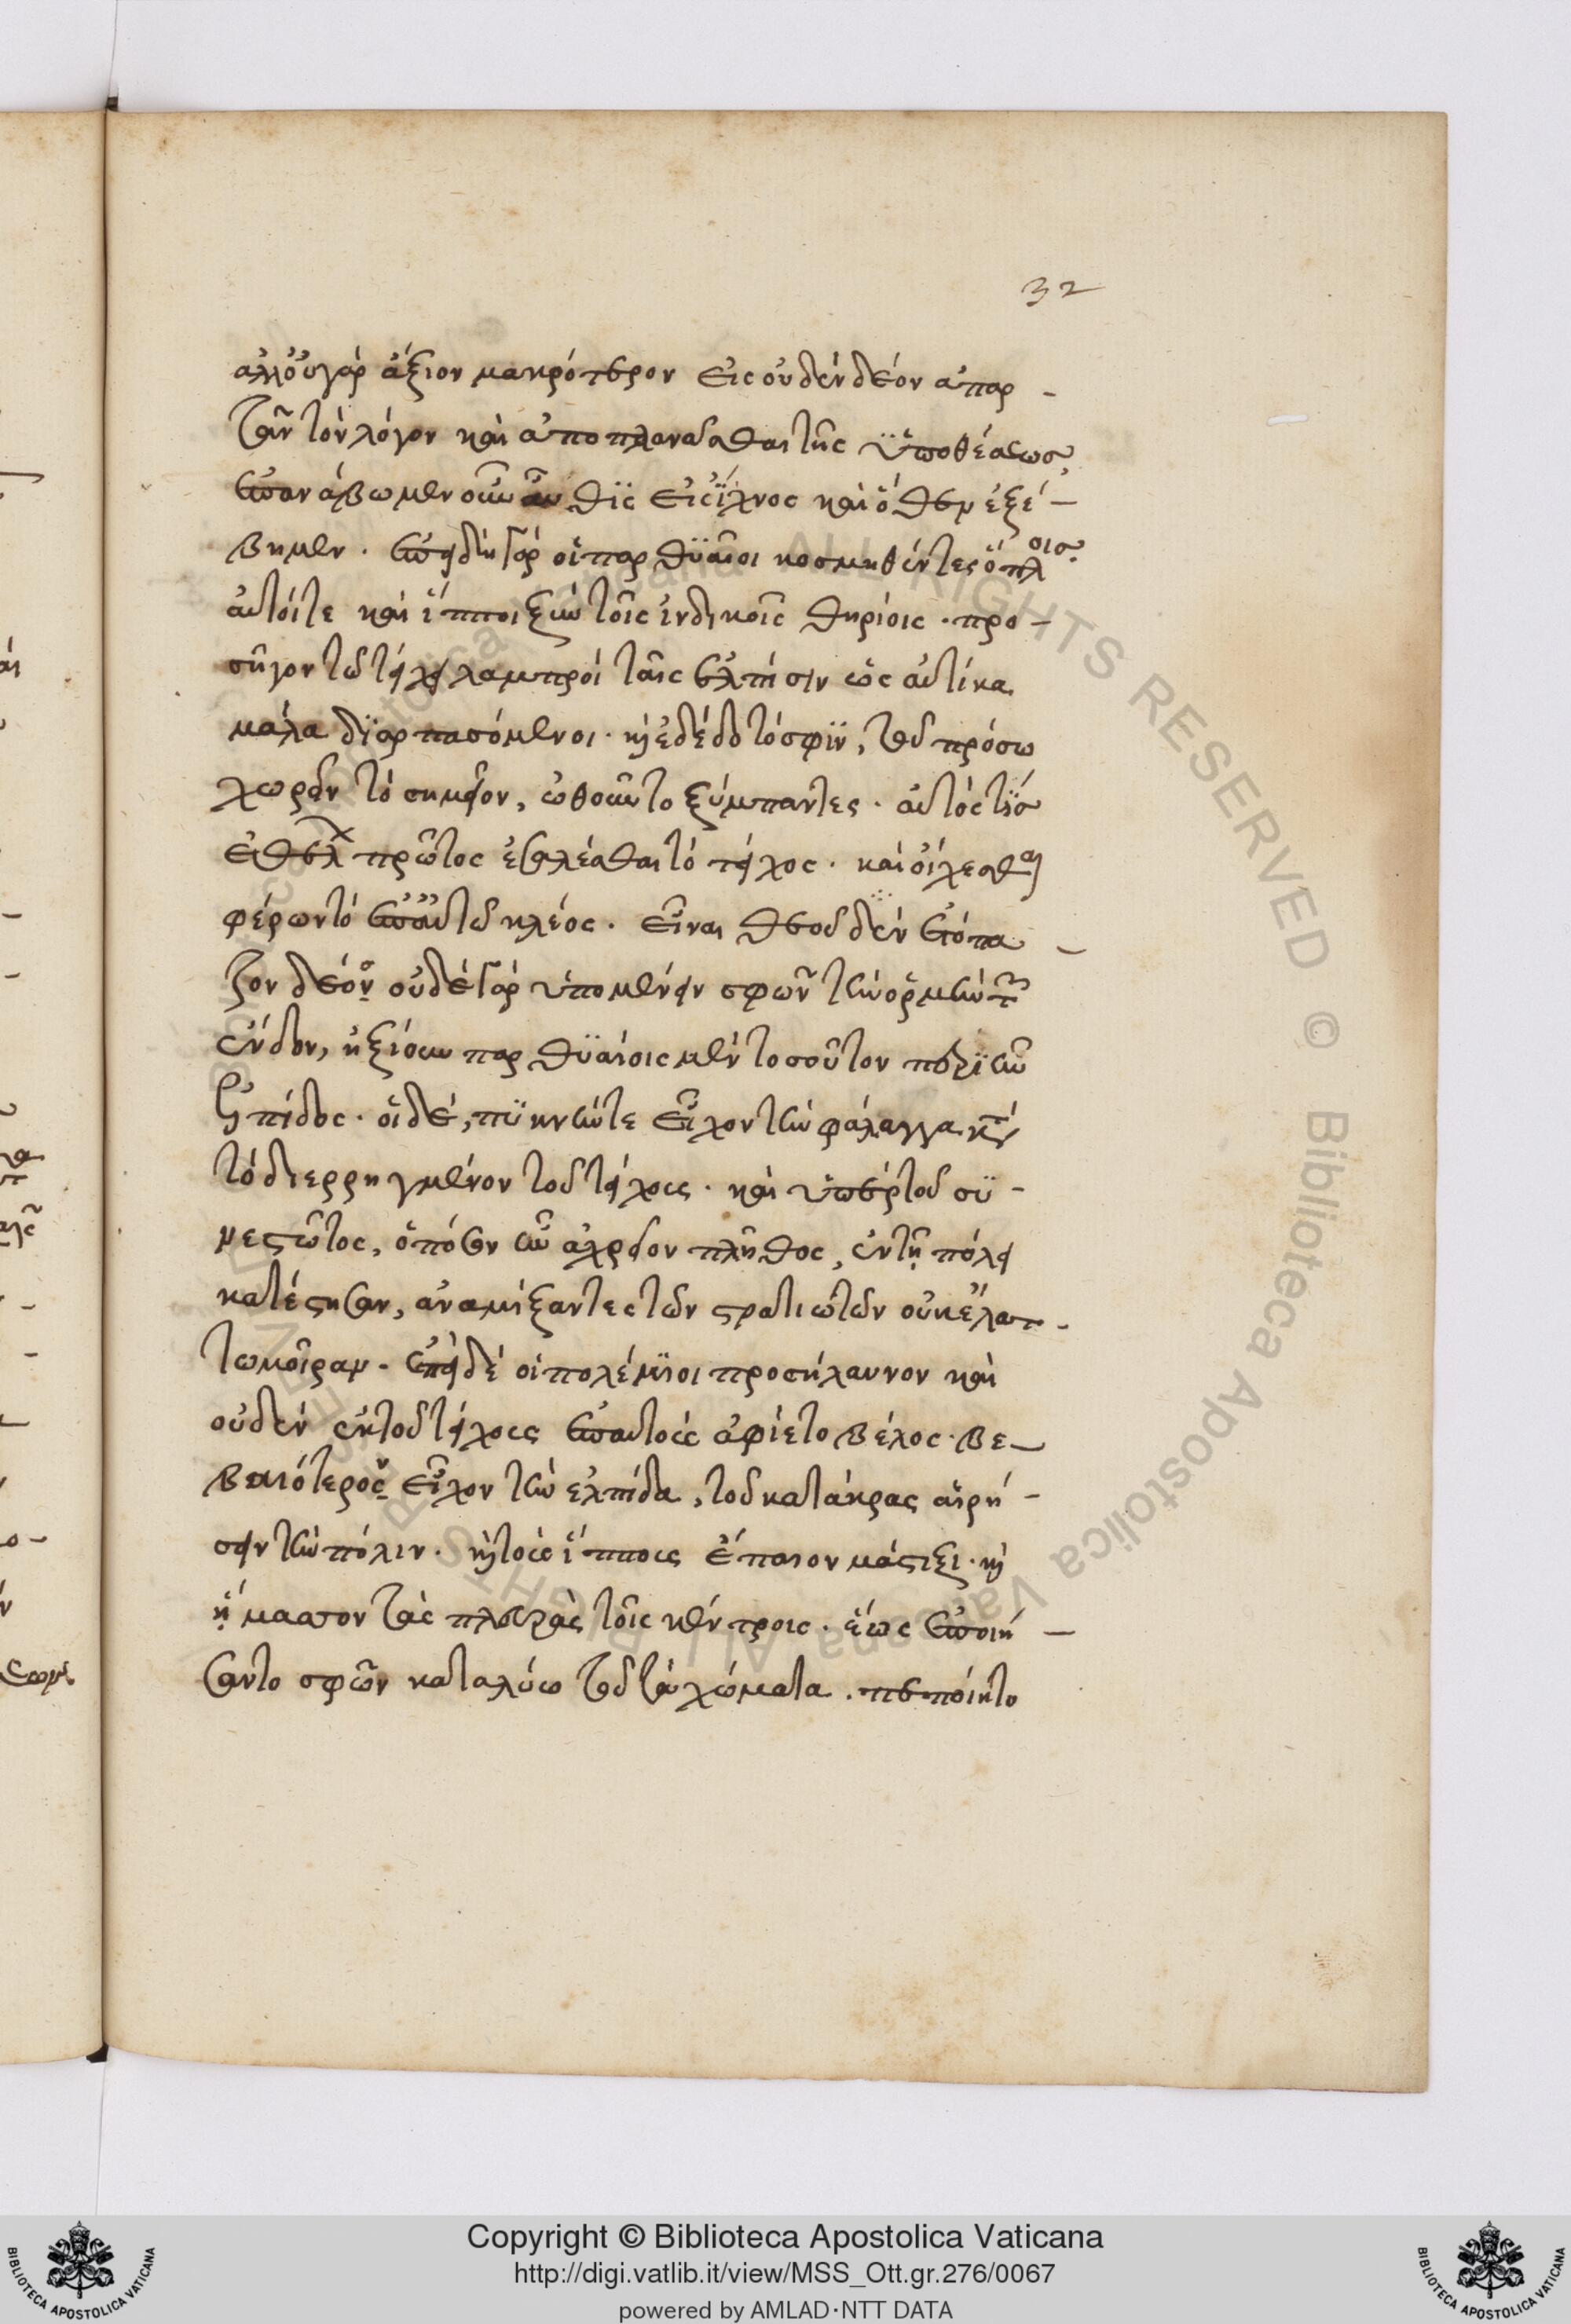 32
ἀλλ' οὐ γὰρ ἄξιον μακρότερον εἰς οὐδὲν δέον ἀπαρ-
τᾶν τὸν λόγον καὶ ἀποπλανᾶσθαι τῆς ὑποθέσεως,
ἐπαναβῶμεν οὖν αὖθις εἰς ἴχνος καὶ ὅθεν ἐξέ-
βημεν. ἐπειδὴ γὰρ οἱ παρθυαῖοι κοσμηθέντες ὅπλοις
αὐτοί τε καὶ ἵπποι ξὺν τοῖς ἰνδικοῖς θηρίοις. προ-
σῆγον τῷ τείχει λαμπροὶ ταῖς ἐλπίσιν ὡς αὐτίκα
μάλα διαρπασόμενοι. κ ἐδέδοτό σφιν, τοῦ πρόσω
χωρεῖν τὸ σημεῖον, ὠθοῦντο ξύμπαντες. αὐτός τις
ἐθέλ πρῶτος ἐσαλέσθαι τὸ τεῖχος. καὶ οἴχεσθαι
φέρων τὸ ἐπ' αὐτῷ κλέος. εἶναι τε οὐδὲν ἐτόπα-
ζον δέος οὐδὲ γὰρ ὑπομένειν σφῶν τὴν ὁρμὴν τ
ἔνδον, ἠξίουν παρθυαίοις μὲν τοσοῦτον περιῆν
ἐλπίδος. οἱ δέ, πυκνήν τε εἶχον τὴν φάλαγγα κτ
τὸ διερρηγμένον τοῦ τείχους. καὶ ὑπὲρ τοῦ συ-
νεστῶτος, ὁπόσον ἦν ἀχρεῖον πλῆθος, ἐν τῇ πόλει
κατέστησαν, ἀναμίξαντες τῶν στρατιωτῶν οὐκ ἐλάτ-
τω μοῖραν. ἐπεὶ δὲ οἱ πολέμιοι προσήλαυνον καὶ
οὐδὲν ἐκ τοῦ τείχους ἐπ' αὐτοὺς ἀφίετο βέλος. βε-
βαιότερον εἶχον τὴν ἐλπίδα, τοῦ κατάκρας αἱρή-
σειν τὴν πόλιν. κ τοὺς ἵππους ἔπαιον μάστιξι. κ
ᾕματτον τὰς πλευρὰς τοῖς κέντροις. ἕως ἐποιή-
σαντο σφῶν κατα λύω τοῦ τὰ χώματα. πεποίητο
Copyright © Biblioteca Apostolica Vaticana
http://digi.vatlib.it/view/MSS_Ott.gr.276/0067
powered by AMLAD·NTT DATA